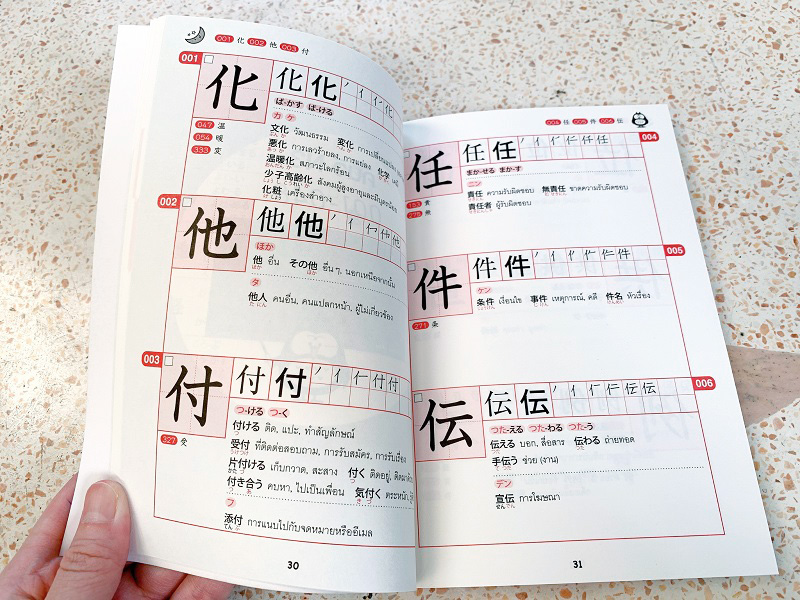 001 化 002 他 003 付
001
化 化 化
ば-かす ば-ける
カ ケ
047 温
054 暖
333 変
文化 วัฒนธรรม 変化
悪化 การเลวร้ายลง, การแย่ลง 化学
温暖化 สภาวะโลกร้อน
少子高齢化 สังคมผู้สูงอายุและมีบุตรน้อย
化粧 เครื่องสำอาง
002
他 他 他
ほか
他 อื่น その他 อื่นๆ, นอกเหนือจากนั้น
タ
他人 คนอื่น, คนแปลกหน้า, ผู้ไม่เกี่ยวข้อง
003
付 付 付
つ-ける つ-く
327 受
付ける ติด, แปะ, ทำสัญลักษณ์
受付 ที่ติดต่อสอบถาม, การรับสมัคร, การรับเรื่อง
片付ける เก็บกวาด, สะสาง 付く ติดอยู่,
付き合う คบหา, ไปเป็นเพื่อน 気付く ตระหนัก,
フ
添付 การแนบไปกับจดหมายหรืออีเมล
30
004 任 005 件 006 伝
004
任 任 任
まか-せる まか-す
ニン
責
無
責任 ความรับผิดชอบ 無責任 ขาดความรับผิดชอบ
責任者 ผู้รับผิดชอบ
005
件 件 件
ケン
271 条
条件 เงื่อนไข 事件 เหตุการณ์, คดี 件名 หัวเรื่อง
006
伝 伝 伝
つた-える つた-わる つた-う
伝える บอก, สื่อสาร 伝わる ถ่ายทอด
手伝う ช่วย (งาน)
デン
宣伝 การโฆษณา
31